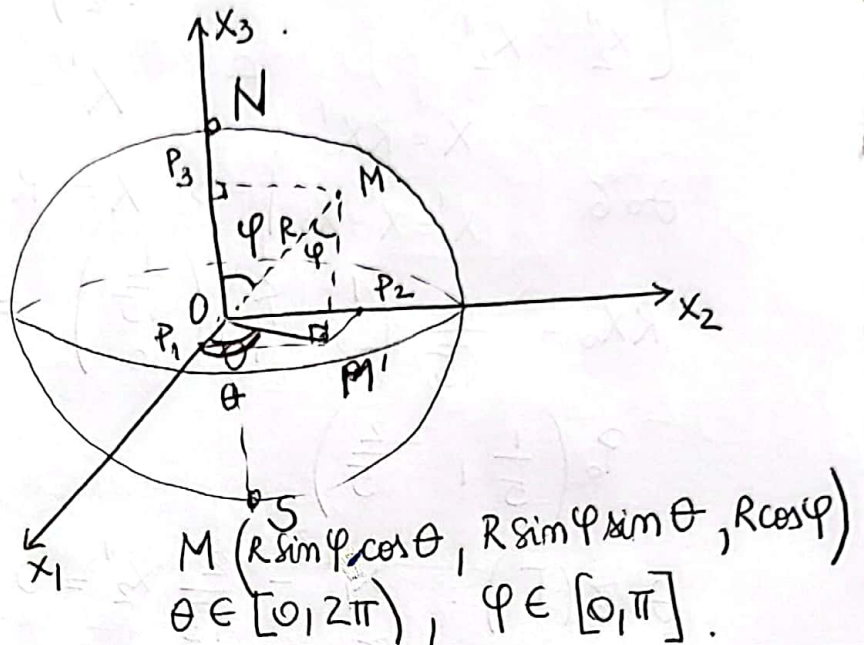 X3
N
P3
M
φ R
φ
O
P2
X2
P1
θ
M'
S
X1
M (R sin φ cos θ, R sin φ sin θ, R cos φ)
θ ∈ [0, 2π), φ ∈ [0, π].